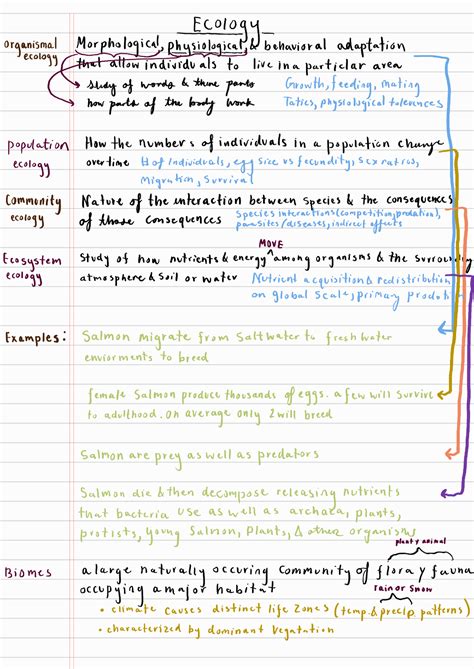 Ecology
organismal ecology Morphological, physiological, & behavioral adaptation
that allow individuals to live in a particlar area
study of words & there parts Growth, feeding, mating
how parts of the body work Tatics, physiological tolerences
population ecology How the numbers of individuals in a population change
over time # of individuals, egg size vs fecundity, sex ratios,
Migration, Survival
Community ecology Nature of the interaction between species & the consequences
of those consequences Species interactions (competition, predation),
parasites/diseases, indirect effects
MOVE
Ecosystem ecology Study of how nutrients & energy ^ among organisms & the surrounding
atmosphere & soil or water Nutrient acquisition & redistribution
on global scale, primary prodution
Examples: Salmon migrate from saltwater to fresh water
enviorments to breed
female Salmon produce thousands of eggs. a few will survive
to adulthood. on average only 2 will breed
Salmon are prey as well as predators
Salmon die & then decompose releasing nutrients
that bacteria use as well as archaea, plants,
protists, young Salmon, Plants, & other organisms
plant y animal
Biomes a large naturally occuring community of flora y fauna
occupying a major habitat rain or snow
• climate causes distinct life zones (temp & precip patterns)
• characterized by dominant vegatation